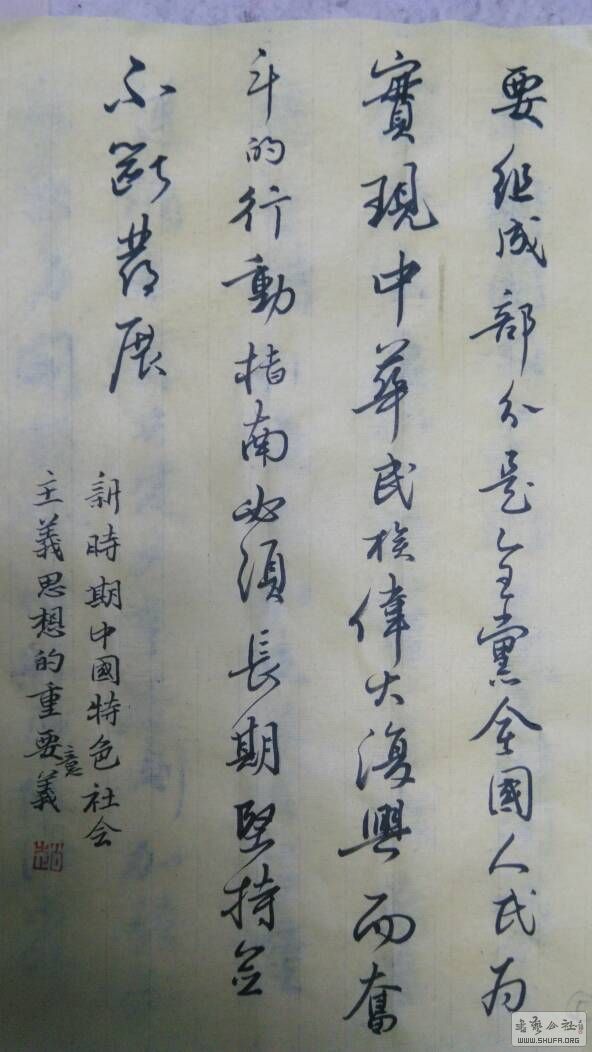 要組成部分是全黨全國人民为
實現中華民族偉大復興而奮
斗的行動指南必須長期堅持並
不斷發展
新時期中國特色社會
主義思想的重要意義
書藝公社
WWW.SHUFA.ORG